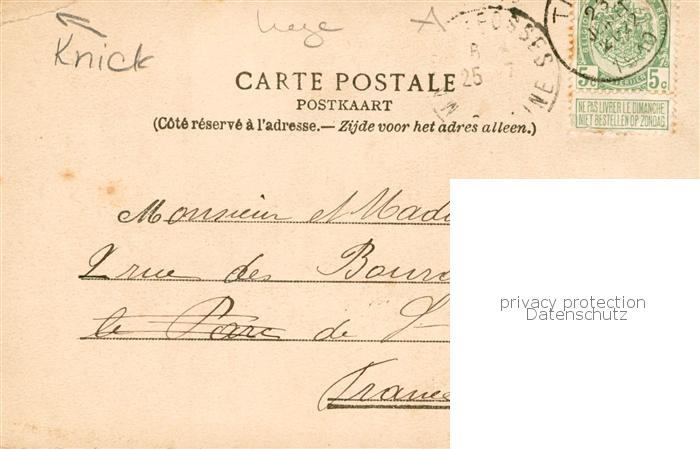 Knick
liege A
FOSSES
25
CARTE POSTALE
POSTKAART
(Côté réservé à l'adresse.— Zijde voor het adres alleen.)
5c 5c
NE PAS LIVRER LE DIMANCHE
NIET BESTELLEN OP ZONDAG
Monsieur et Mad
2 rue des Bour
le Parc de S
France
privacy protection
Datenschutz